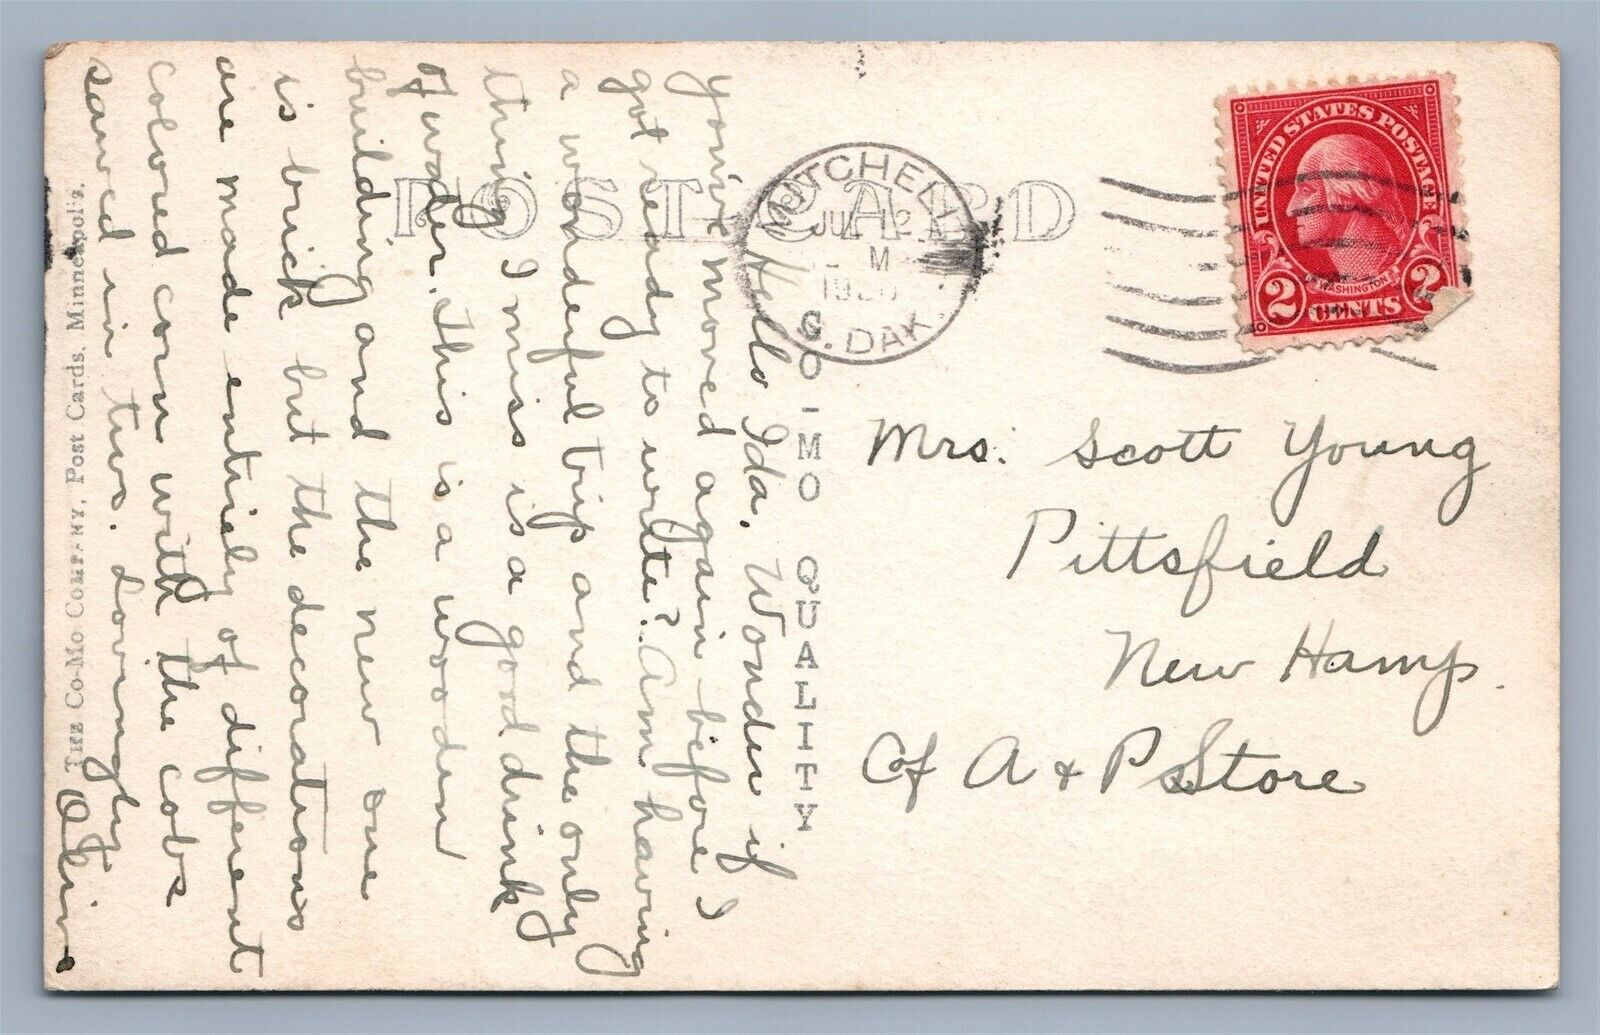 POST CARD
MITCHELL
JUL 12
M
S. DAK.
UNITED STATES POSTAGE
WASHINGTON
2 CENTS 2
CO-MO QUALITEY
THE CO-MO COMPANY, Post Cards, Minneapolis.
Hello Ida, Wonder if
you've moved again before I
got ready to write? Am having
a wonderful trip and the only
thing I miss is a good drink
of water. This is a wooden
building and the new one
is brick but the decorations
are made entirely of different
colored corn with the cobs
sawed in two. Lovingly
Mrs. Scott Young
Pittsfield
New Hamp.
c/o A & P Store